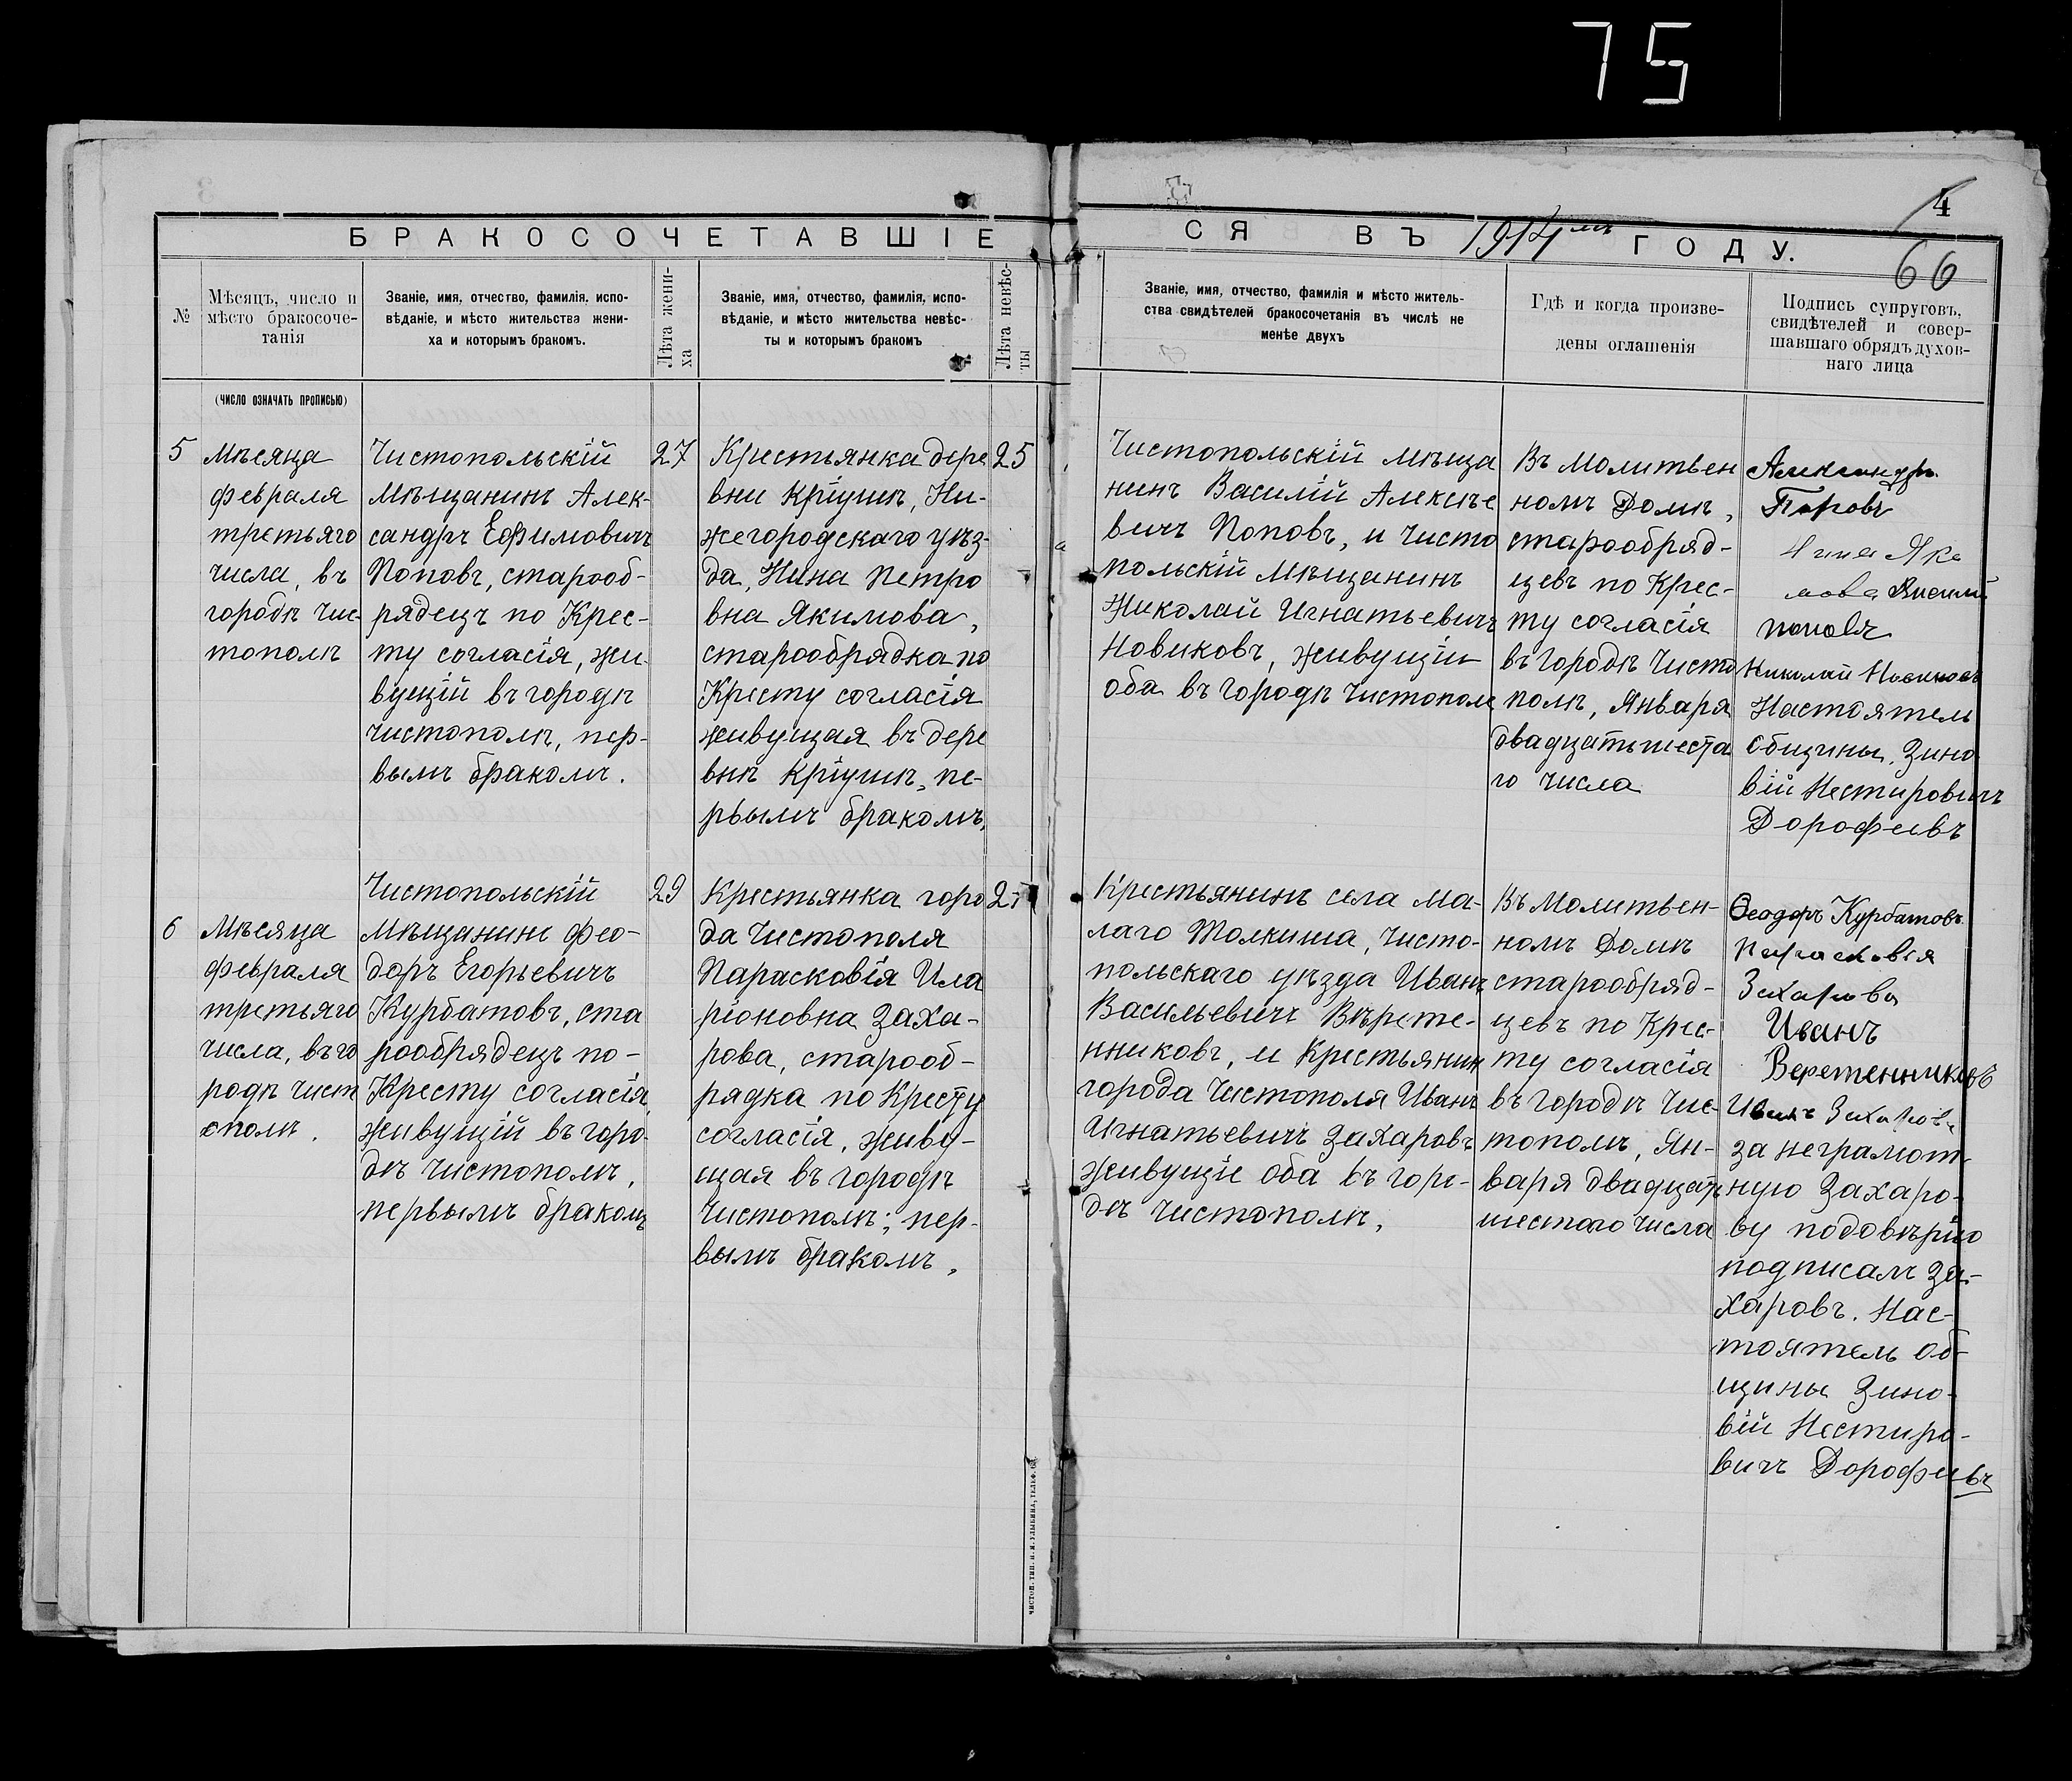 75
4
БРАКОСОЧЕТАВШІЕ
СЯ ВЪ 1914мъ ГОДУ.
66
№
Мѣсяцъ, число и
мѣсто бракосоче-
танія
Званіе, имя, отчество, фамилія, испо-
вѣданіе, и мѣсто жительства жени-
ха и которымъ бракомъ.
Лѣта жени-
ха
Званіе, имя, отчество, фамилія, испо-
вѣданіе, и мѣсто жительства невѣс-
ты и которымъ бракомъ
Лѣта невѣс-
ты
Званіе, имя, отчество, фамилія и мѣсто житель-
ства свидѣтелей бракосочетанія въ числѣ не
менѣе двухъ
Гдѣ и когда произве-
дены оглашенія
Подпись супруговъ,
свидѣтелей и совер-
шавшаго обрядъ духов-
наго лица
(ЧИСЛО ОЗНАЧАТЬ ПРОПИСЬЮ)
5
Мѣсяца
февраля
третьяго
числа, въ
городѣ Чис-
тополѣ
Чистопольскій
Мѣщанинъ Алек-
сандръ Ефимовичъ
Поповъ, старооб-
рядецъ по Крес-
ту согласія, жи-
вущій въ городѣ
Чистополѣ, пер-
вымъ бракомъ.
27
Крестьянка дере
вни Кріуши, Ни-
жегородскаго уѣз-
да, Нина Петро
вна Якимова,
старообрядка по
Кресту согласія
живущая въ дере
внѣ Кріушѣ, пе-
рвымъ бракомъ,
25
Чистопольскій мѣща
нинъ Василій Алексѣе
вичъ Поповъ, и Чисто
польскій Мѣщанинъ
Николай Игнатьевичъ
Новиковъ, живущіи
оба въ городѣ Чистополѣ
Въ Молитвен
номъ Домѣ,
старообряд-
цевъ по Крес-
ту согласія
въ городѣ Чисто
полѣ, Января
двадцатьшеста
го числа
Александръ
Поповъ
Нина Яки
мова Василій
Поповъ
Николай Новиковъ
Настоятель
Общины, Зино
вій Нестировичъ
Дорофеивъ
6
Мѣсяца
февраля
третьяго
числа, въ го
родѣ Чист
ополѣ.
Чистопольскій
Мѣщанинъ Фео-
доръ Егорьевичъ
Курбатовъ, ста
рообрядецъ по-
Кресту согласія,
живущій въ горо-
дѣ Чистополѣ,
первымъ бракомъ
29
Крестьянка горо
да Чистополя
Парасковія Ила
ріоновна Заха-
рова, старооб-
рядка по Кресту
согласія, живу-
щая въ городѣ
Чистополѣ; пер-
вымъ бракомъ,
Крестьянинъ села Ма-
лаго Толкиша, Чисто-
польскаго уѣзда Иванъ
Васильевичъ Вѣрете-
нниковъ, и Крестьянин
города Чистополя Иванъ
Игнатьевичъ Захаровъ
живущіе оба въ горо-
дѣ Чистополѣ,
Въ Молитвен-
номъ Домѣ
старообряд-
цевъ по Крес-
ту согласія
въ городѣ Чис-
тополѣ, Ян-
варя двадцать
шестого числа
Ѳеодоръ Курбатовъ
Парасковія
Захарова
Иванъ
Веретенниковъ
Иванъ Захаровъ
за неграмот-
ную Захаро-
ву подовѣрію
подписалъ За-
харовъ. Нас-
тоятель Об-
щины Зино-
вій Нестиро-
вичъ Дорофеивъ